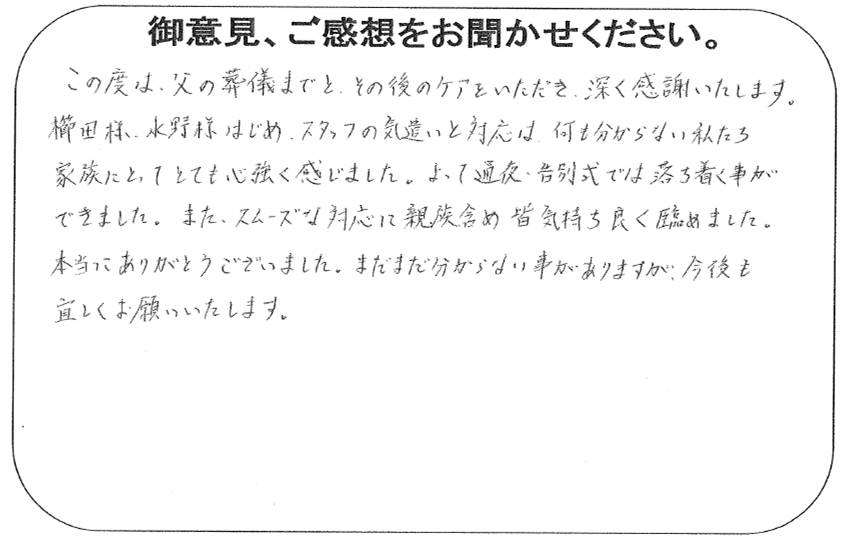 御意見、ご感想をお聞かせください。
この度は、父の葬儀までと、その後のケアをいただき、深く感謝いたします。
櫛田様、水野様はじめ、スタッフの気遣いと対応は、何も分からない私たち
家族にとってとても心強く感じました。よって通夜・告別式では落ち着く事が
できました。また、スムーズな対応に親族含め皆気持ち良く臨めました。
本当にありがとうございました。まだまだ分からない事がありますが、今後も
宜しくお願いいたします。